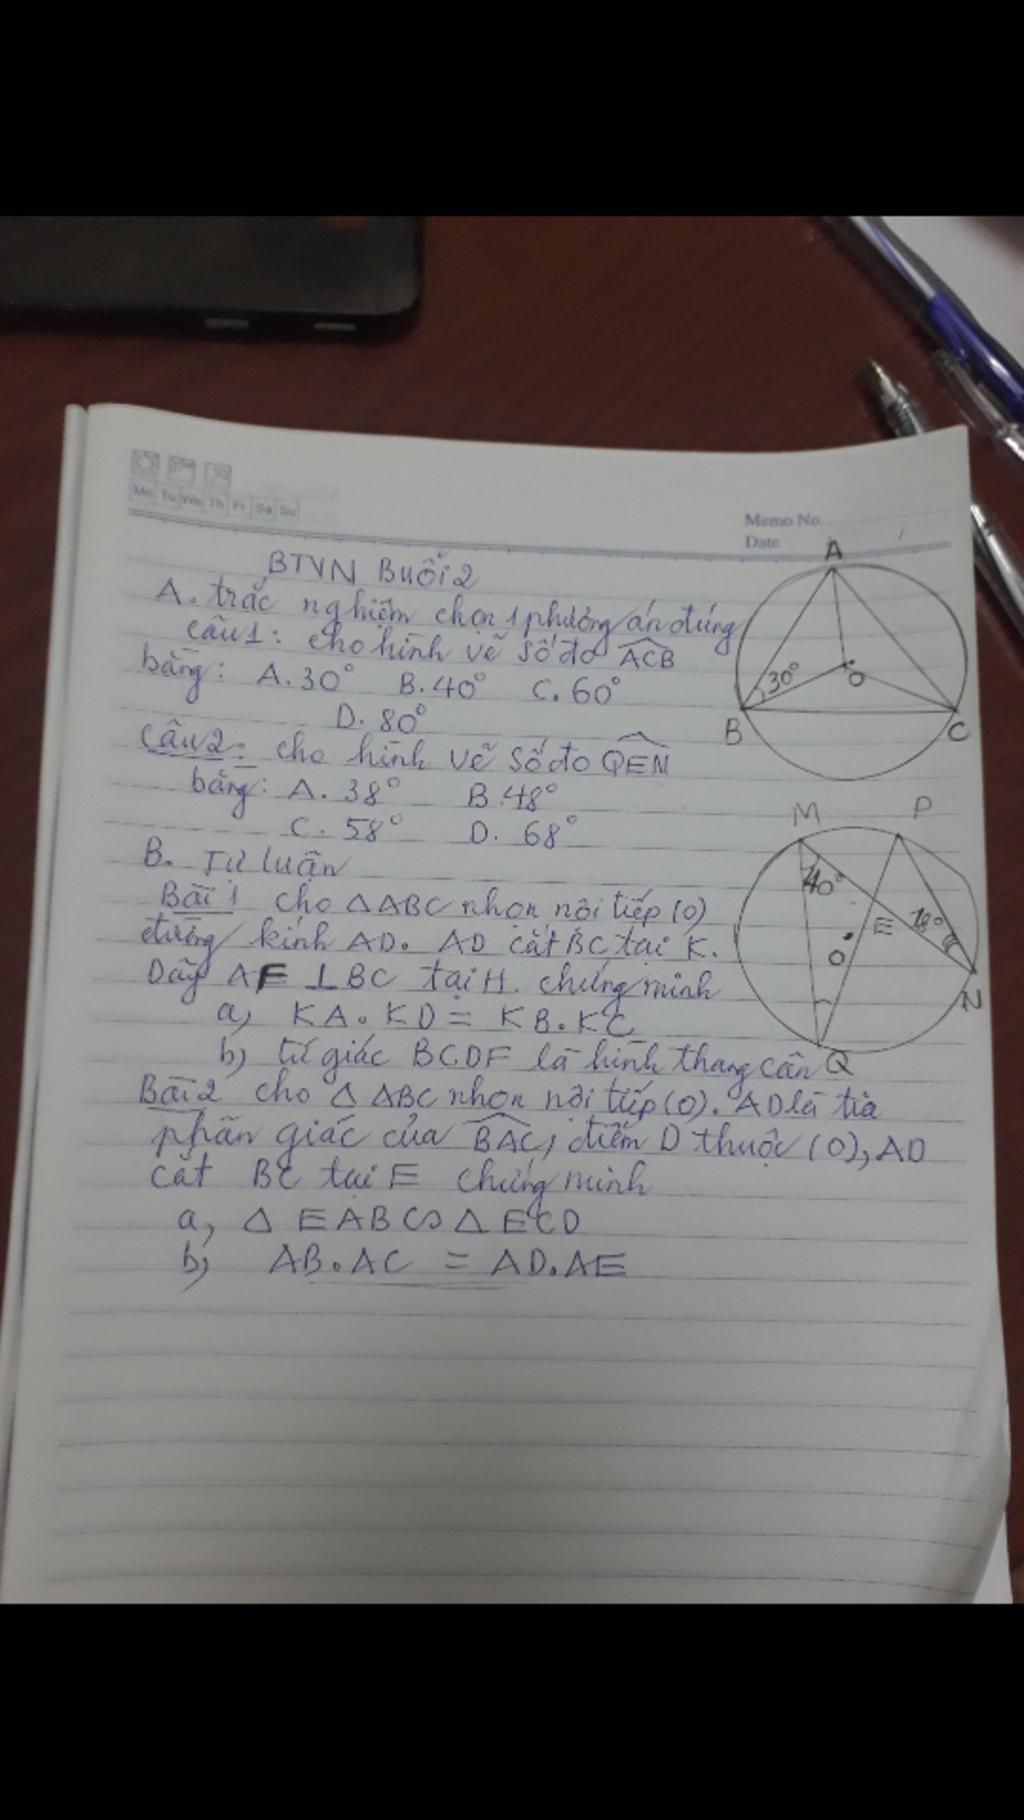 Mo Tu We Th Fr Sa Su
Memo No.
Date
BTVN Buổi 2
A. trắc nghiệm chọn 1 phương án đúng
câu 1: cho hình vẽ số đo ACB
bằng: A. 30° B. 40° C. 60°
D. 80°
Câu 2: cho hình vẽ số đo QEN
bằng: A. 38° B. 48°
C. 58° D. 68°
B. Tự luận
Bài 1 cho ΔABC nhọn nội tiếp (O)
đường kính AD. AD cắt BC tại K.
Dây AF ⊥ BC tại H. chứng minh
a, KA.KD = KB.KC
b, tứ giác BCDF là hình thang cân
Bài 2 cho Δ ABC nhọn nội tiếp (O). AD là tia
phân giác của BAC, điểm D thuộc (O), AD
cắt BC tại E chứng minh
a, Δ EAB ∽ Δ ECD
b, AB.AC = AD.AE
A
30°
O
B
C
M
P
40°
E
18°
O
N
Q